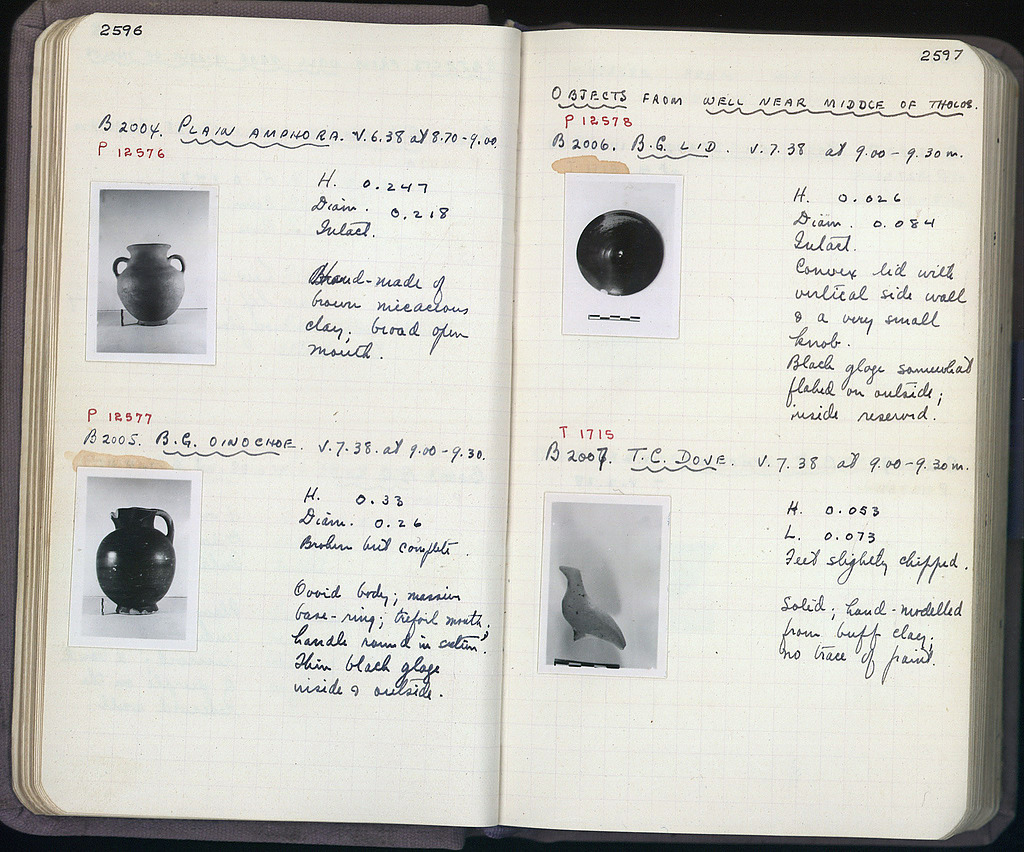 2596
B 2004. PLAIN AMPHORA. V.6.38 at 8.70-9.00
P 12576
H. 0.247
Diam. 0.218
Intact.
Hand-made of
brown micaceous
clay; broad open
mouth.
P 12577
B 2005. B.G. OINOCHOE. V.7.38. at 9.00-9.30.
H. 0.33
Diam. 0.26
Broken but complete.
Ovoid body; massive
base-ring; trefoil mouth.
handle round in sectn.
Thin black glaze
inside & outside.
2597
OBJECTS FROM WELL NEAR MIDDLE OF THOLOS.
P 12578
B 2006. B.G. LID. V.7.38 at 9.00-9.30m.
H. 0.026
Diam. 0.084
Intact.
Convex lid with
vertical side wall
& a very small
knob.
Black glaze somewhat
flaked on outside;
inside reserved.
T 1715
B 2007. T.C. DOVE. V.7.38 at 9.00-9.30m.
H. 0.053
L. 0.073
Feet slightly chipped.
Solid; hand-modelled
from buff clay;
no trace of paint.